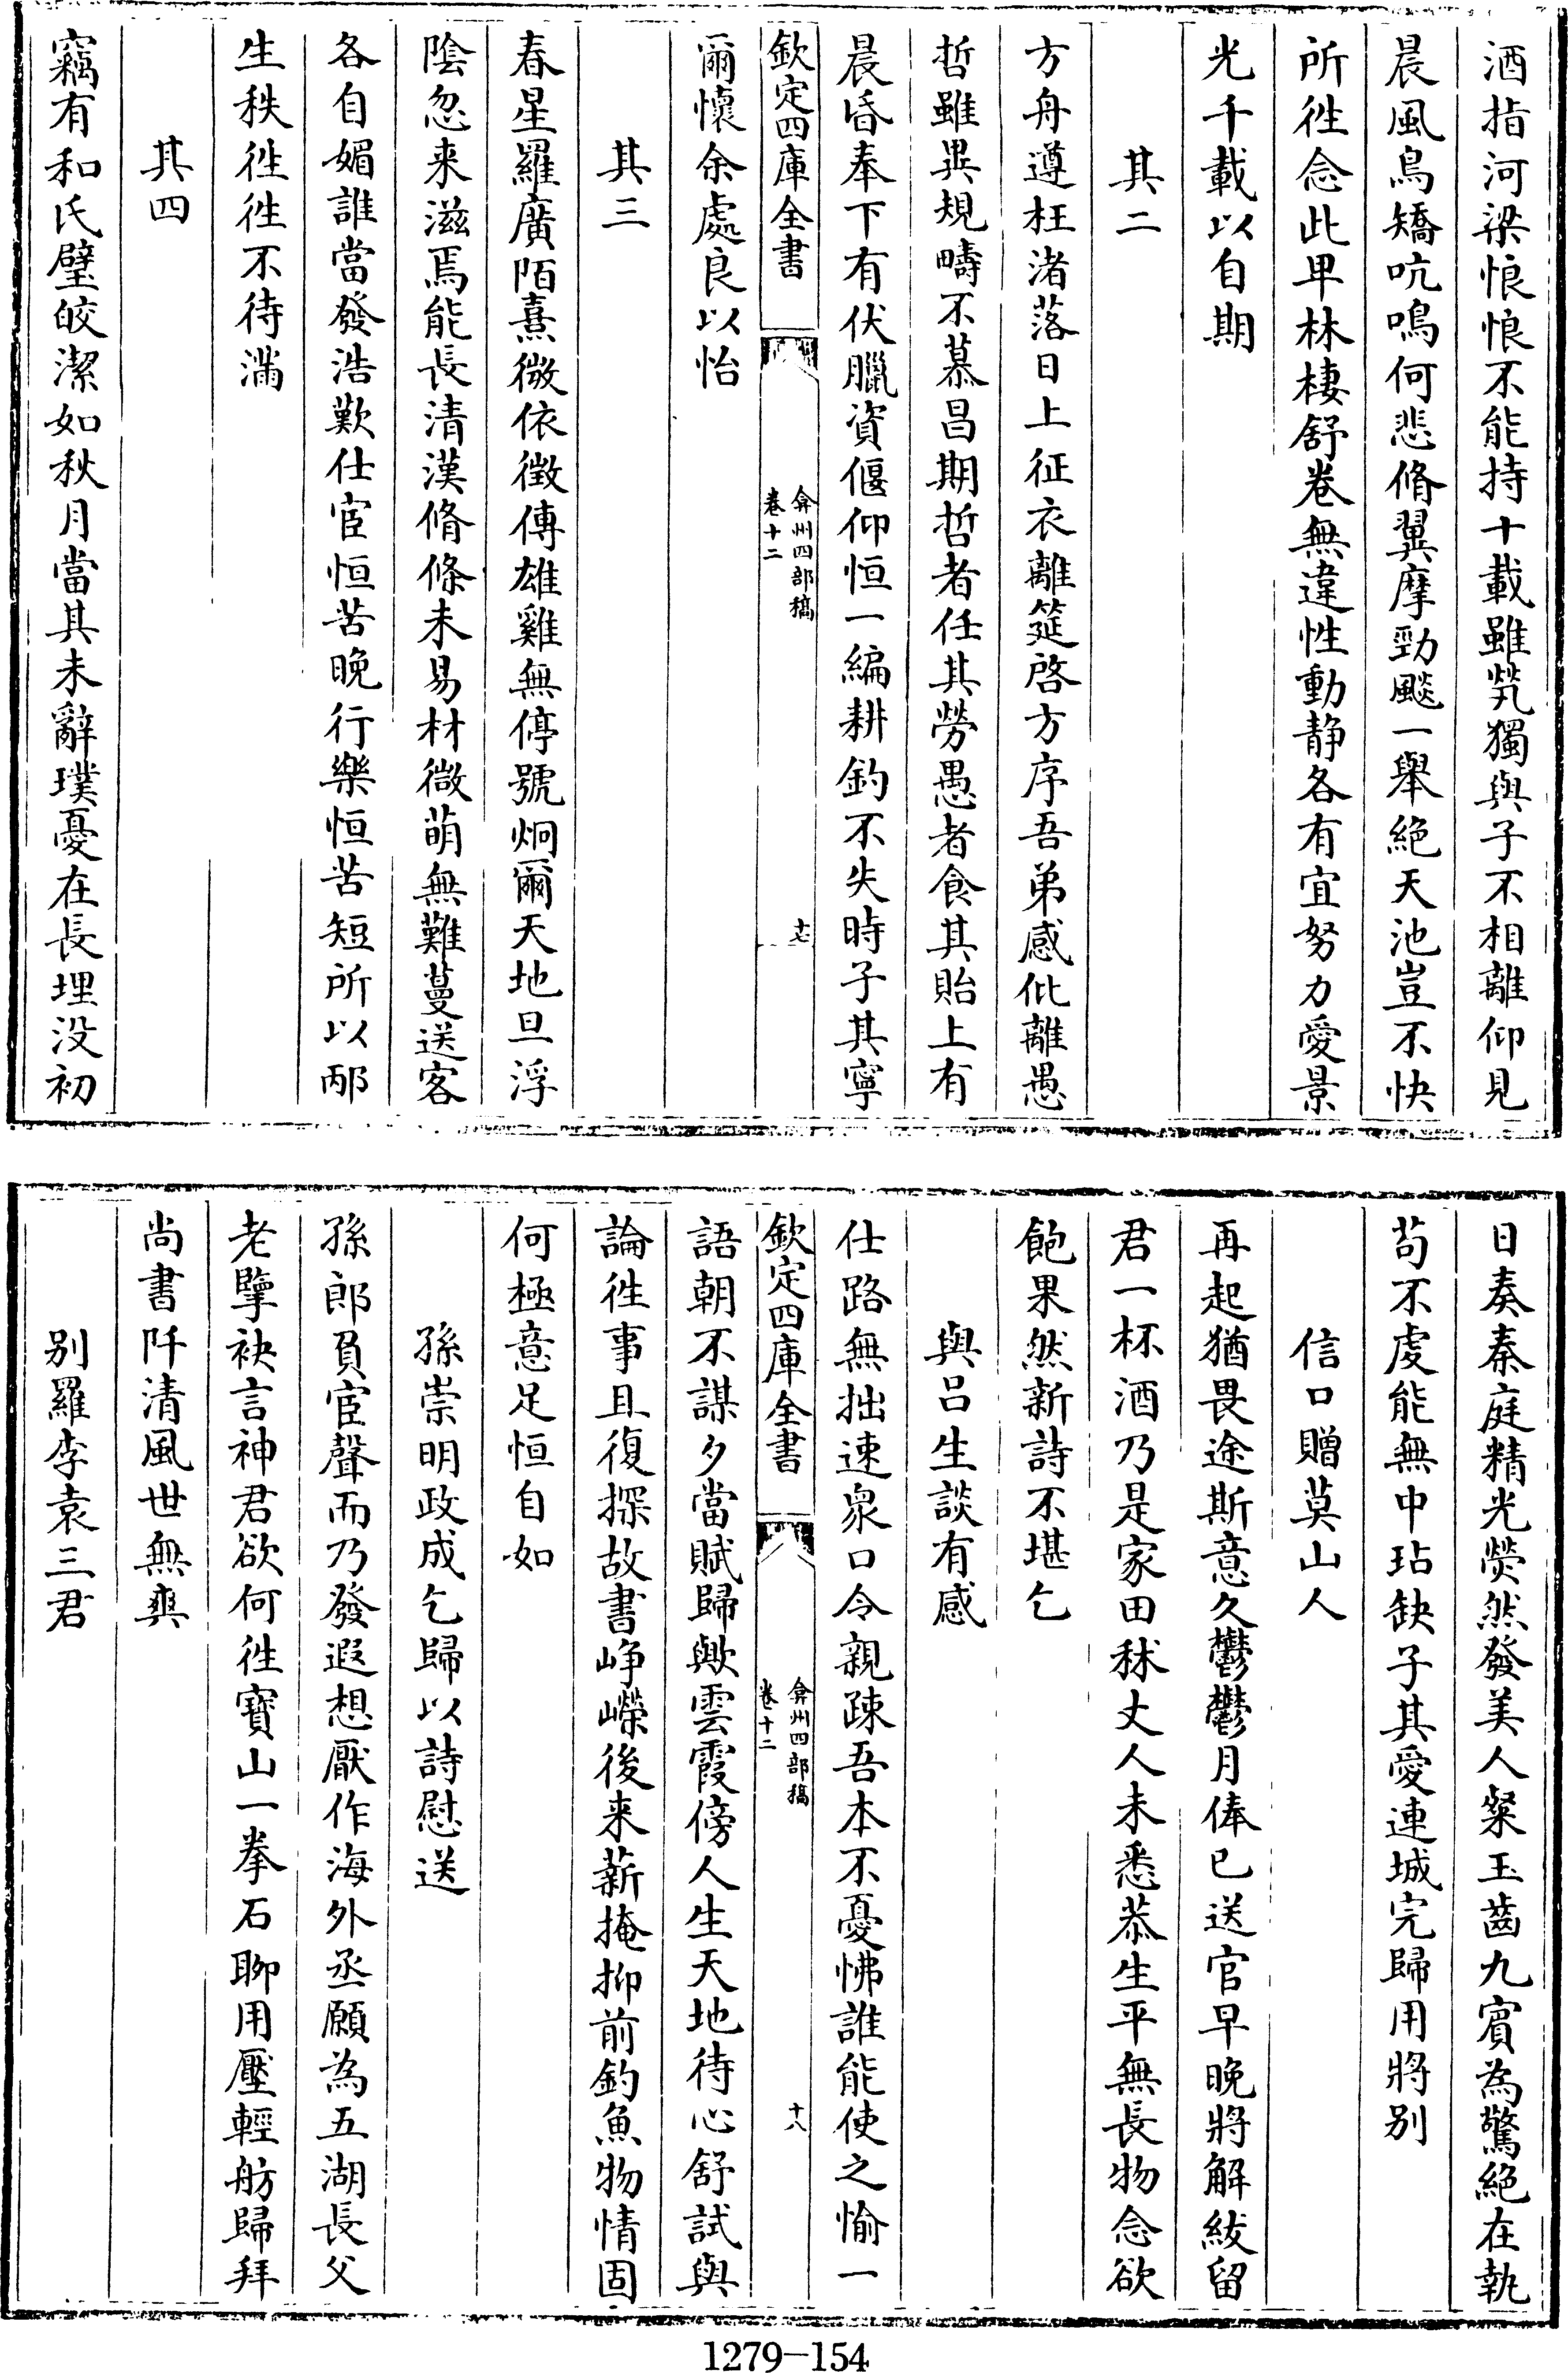 酒指河梁悢悢不能持十載雖煢獨與子不相離仰見
晨風鳥矯吭鳴何悲脩翼摩勁颷一舉絶天池豈不快
所徃念此卑林棲舒卷無違性動静各有宜努力愛景
光千載以自期
其二
方舟遵枉渚落日上征衣離筵啓方序吾弟感仳離愚
哲雖異規疇不慕昌期哲者任其勞愚者食其貽上有
晨昏奉下有伏臘資偃仰恒一編耕釣不失時子其寧
欽定四庫全書
弇州四部稿
卷十二
十七
爾懷余處良以怡
其三
春星羅廣陌熹微依徵傳雄雞無停號炯爾天地旦浮
陰忽来滋焉能長清漢脩條未易材微萌無難蔓送客
各自媚誰當發浩歎仕宦恒苦晚行樂恒苦短所以邴
生秩徃徃不待滿
其四
竊有和氏璧皎潔如秋月當其未辭璞憂在長埋没初
日奏秦庭精光熒然發美人粲玉齒九賓為驚絶在執
苟不虔能無中玷缺子其愛連城完歸用將别
信口贈莫山人
再起猶畏途斯意久鬱鬱月俸已送官早晚將解紱留
君一杯酒乃是家田秫丈人未悉恭生平無長物念欲
飽果然新詩不堪乞
與呂生談有感
仕路無拙速衆口令親疎吾本不憂怫誰能使之愉一
欽定四庫全書
弇州四部稿
卷十二
十八
語朝不謀夕當賦歸歟雲霞傍人生天地待心舒試與
論徃事且復探故書崢嶸後来薪掩抑前釣魚物情固
何極意足恒自如
孫崇明政成乞歸以詩慰送
孫郎負宦聲而乃發遐想厭作海外丞願為五湖長父
老擥袂言神君欲何徃寶山一拳石聊用壓輕舫歸拜
尚書阡清風世無爽
别羅李袁三君
1279-154